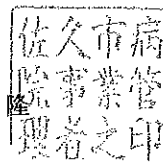 佐久市病
院事業管
理者之印
隆